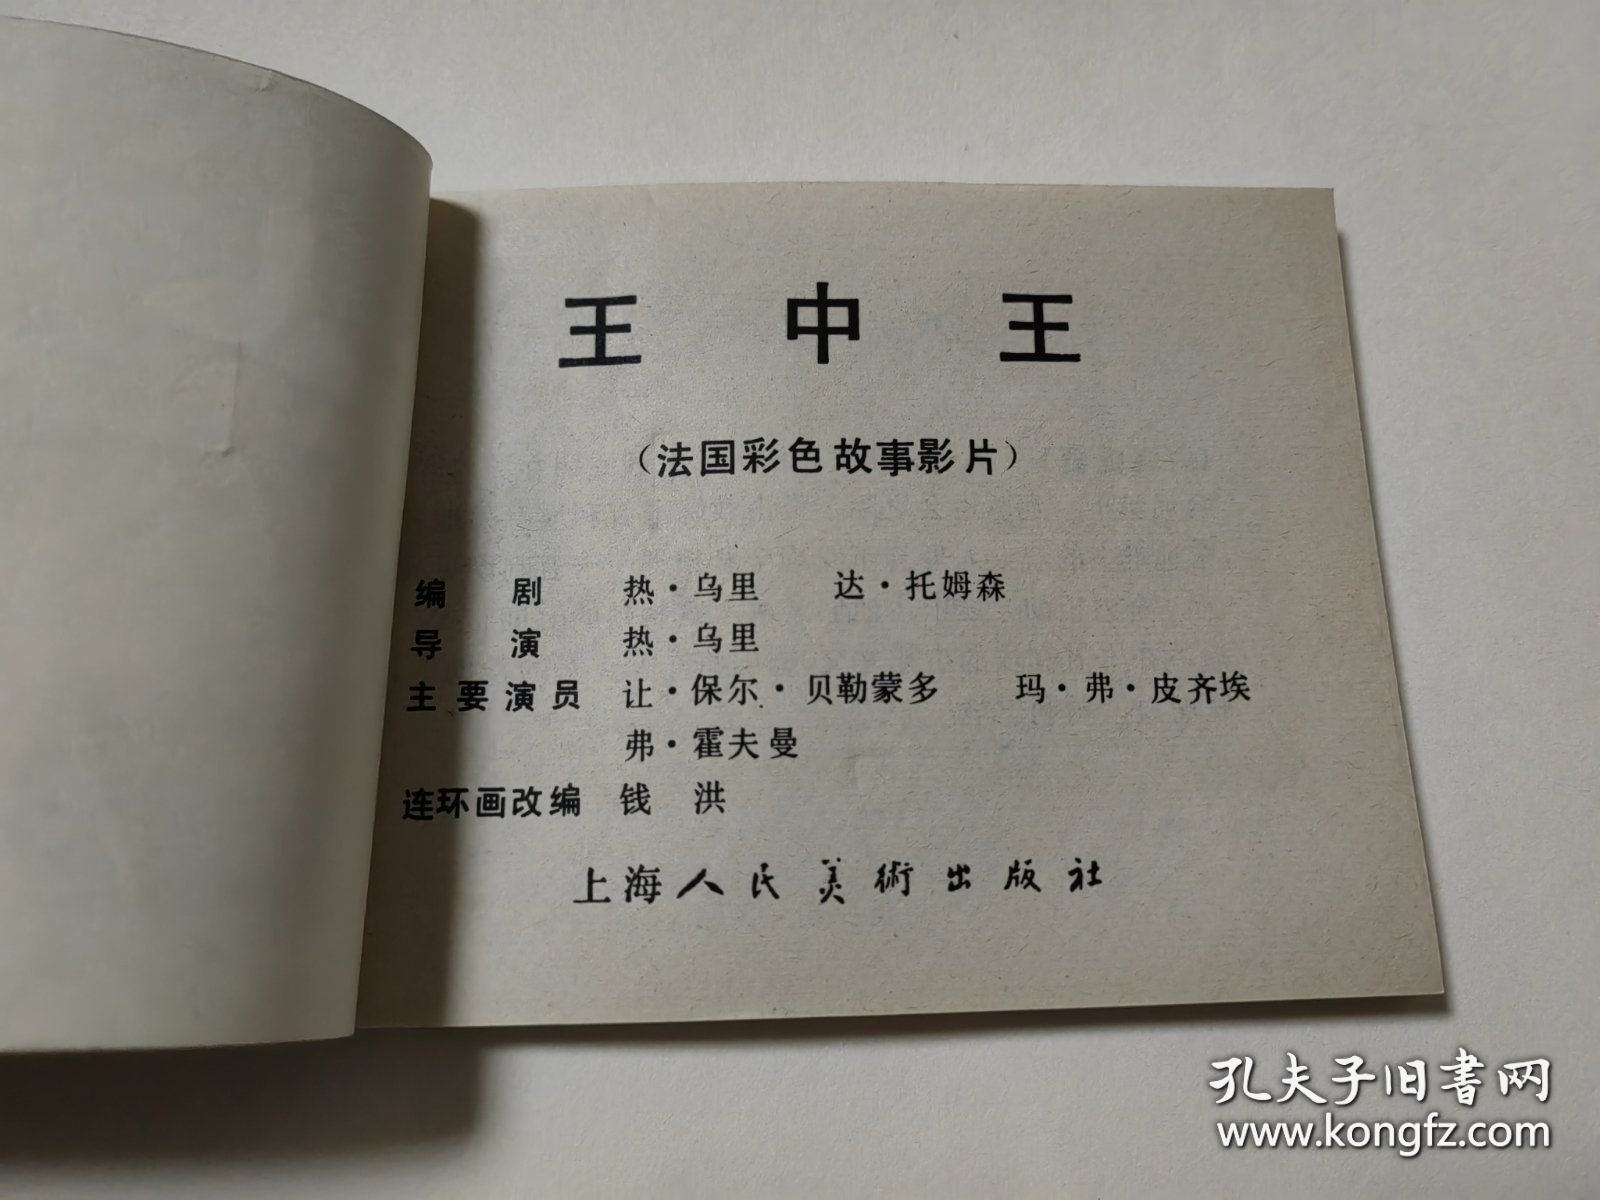 王中王
（法国彩色故事影片）
编剧 热·乌里 达·托姆森
导演 热·乌里
主要演员 让·保尔·贝勒蒙多 玛·弗·皮齐埃
弗·霍夫曼
连环画改编 钱洪
上海人民美術出版社
孔夫子旧书网
www.kongfz.com